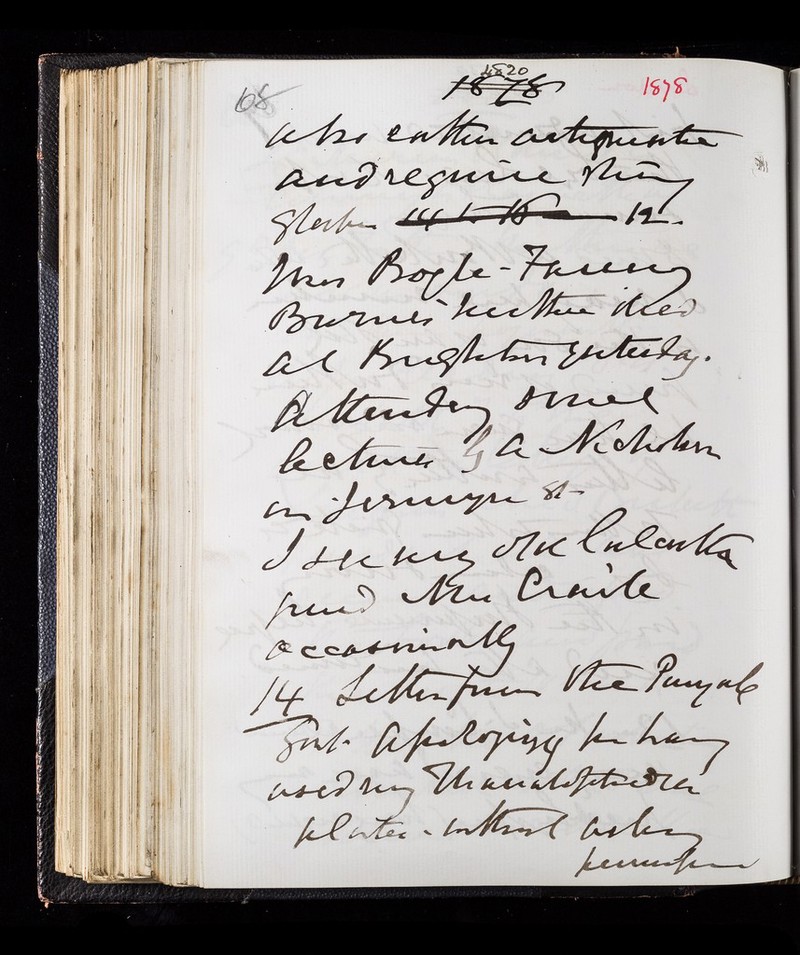 68
1820
1878
1878
also rather antiquated
and require strong
glasses 14 to 16 12.
Mrs Bogle - Fanny
Burnes' mother died
at Brighton yesterday.
Attending some
lectures by A Nicholson
in Jermyn St
I see my old Calcutta
friend Mrs
occasionally
14 Letter from the Punjab
Govt. Apologising for having
used my Thanatophidia
plates - without asking
permission